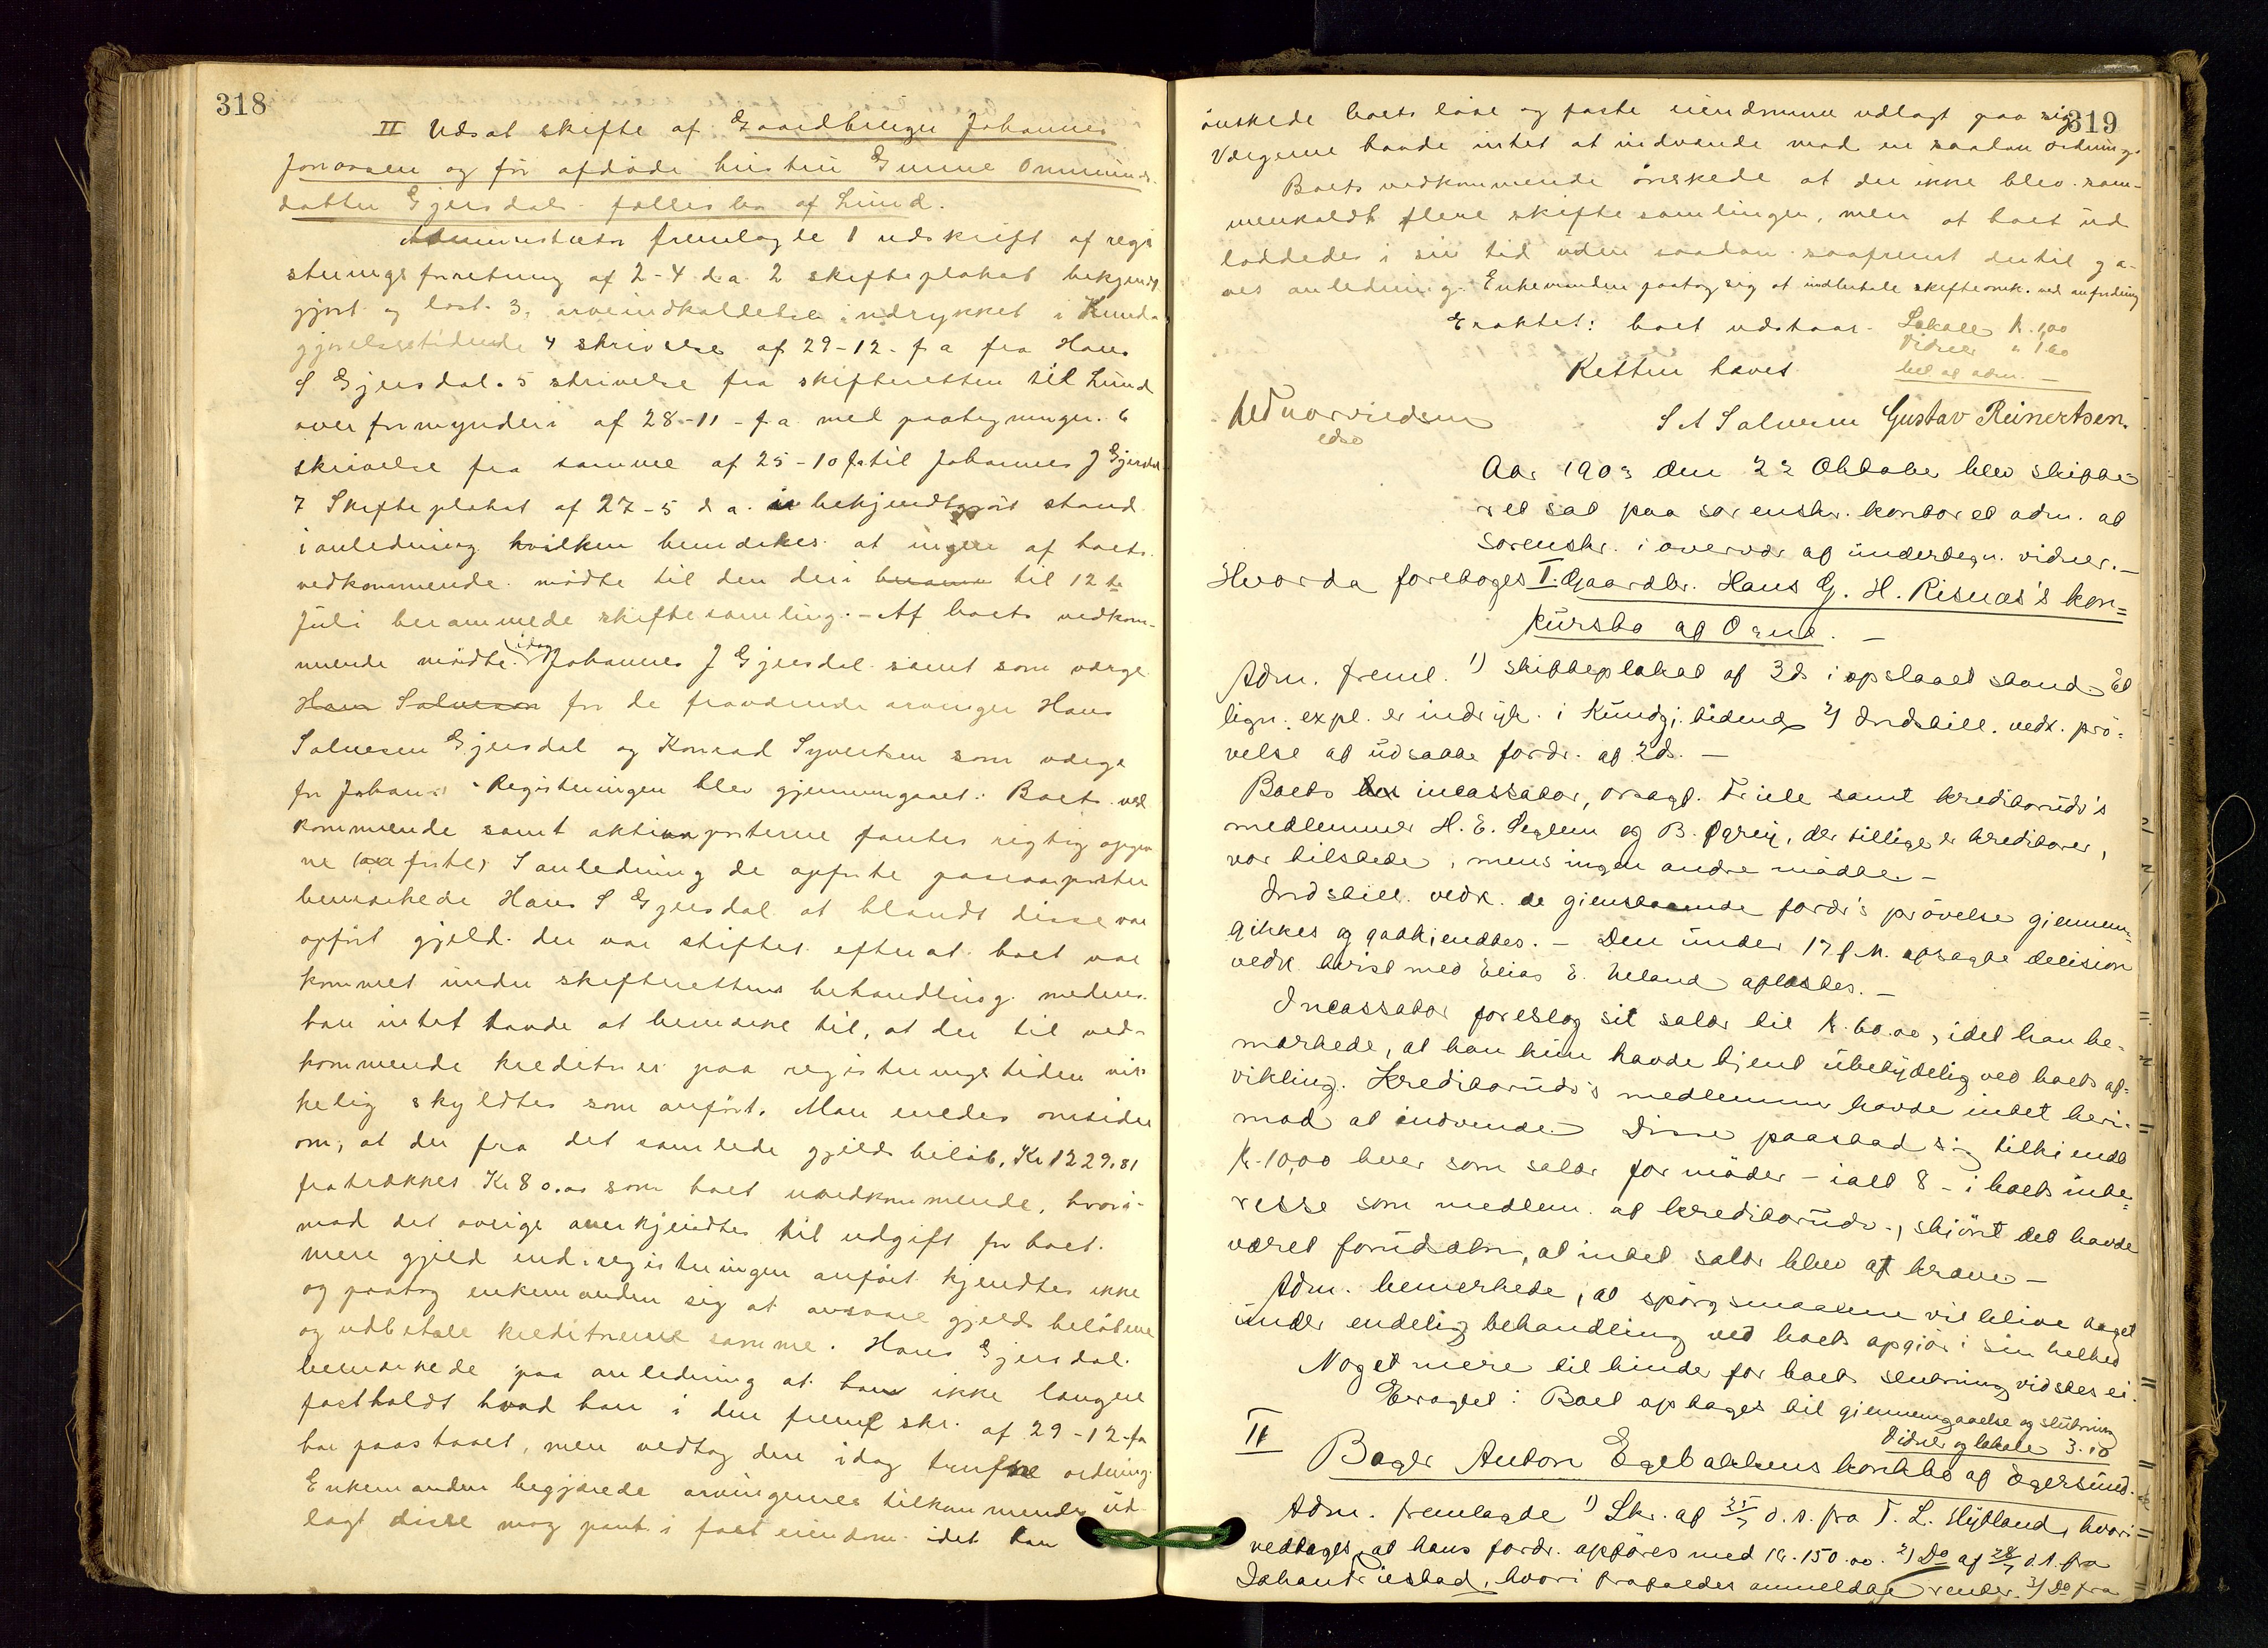 318
II Udsat skifte af Gaardbruger Johannes
Jonassen og før afdøde hustru Gunne Ommunds-
datter Gjersdals fællesbo af Lund.
Administrator fremlagte 1 udskrift af regi
streringsforretning af 2-4 d.a. 2 skifteplakat bekjendt
gjort og læst. 3, arveindkaldelse indrykket i Kundg
gjørelsestidende 4 skrivelse af 29-12- f a fra Hans
S Gjersdal. 5 skrivelse fra skifteretten til Lund
overformynderi af 28-11- f.a. med paategninger. 6
skrivelse fra samme af 25-10 f.a. til Johannes J Gjersdal
7 Skifteplakat af 27-5 d a. i bekjendtgjort stand
i anledning hvilken bemærkes at ingen af boets
vedkommende mødte til den deri berama til 12te
Juli berammede skiftesamling. - Af boets vedkom-
mende mødte idag Johannes J Gjersdal samt som værge
Hans Salvesen for de fraværende arvinger Hans
Salvesen Gjersdal og Konrad Syvertsen som værge
for Johans. Registreringen blev gjennemgaaet: Boets ved
kommende samt aktivaposterne fantes rigtig opgiv
ne (anførte) I anledning de opførte passivaposter
bemærkede Hans S Gjersdal at blandt disse var
opført gjæld der var stiftet efter at boet var
kommet under skifterettens behandling medens
han intet havde at bemærke til, at der til ved-
kommende kreditorer paa registreringstiden vir
kelig skyldtes som anført. Man enedes omsider
om, at der fra det samlede gjelds beløb, Kr 1229,81
fratrækkes Kr 80.00 som boet uvedkommende, hvori-
mod det øvrige anerkjendtes til udgift for boet.
Mere gjæld end i registreringen anført kjendtes ikke
og paatog enkemanden sig at ansvare gjelds beløbene
og udbetale kreditorerne samme. Hans Gjersdal
bemærkede paa anledning at han ikke længere
fastholdt hvad han i den freml skr. af 29-12-fa
har paastaaet, men vedtog den idag trufne ordning.
Enkemanden begjærede arvingernes tilkommende ud
lagt disse mod pant i fast eiendom idet han
319
ønskede boets løse og faste eiendomme udlagt paa sig
Værgerne havde intet at indvende mod en saadan ordning.
Boets vedkommende ønskede at der ikke blev sam-
menkaldt flere skiftesamlinger, men at boet ud
loddedes i sin tid uden saadan saafremt dertil ga-
ves anledning. Enkemanden paatog sig at indbetale skifteomk. ved anfordring
Eragtet: boet udstaar. Lokale k. 1,00
Vidner " 1.60
bet af adm. -
Retten hævet
S A Salvesen Gustav Reinertsen.
Aar 1903 den 22 Oktober blev skifte-
ret sat paa sorenskr. kontoret adm. af
sorenskr. i overvær af undertegn. vidner. -
Hvorda foretoges I. Gaardbr. Hans G. H. Risnæs's kon=
kursbo af Ogna. -
Adm. freml. 1) skifteplakat af 3ds i opslaaet stand - Et
lign. expl. er indryk. i Kundgj. tidende 2) Indstill. vedr. prø-
velse af udsatte fordr. af 2ds. -
Boets incassator, orsagf. Friele samt kreditorudv's
medlemmer H. E. Seglem og B. Ognej, der tillige er kreditorer,
var tilstede, mens ingen andre mødte. -
Indstill. vedr. de gjenstaaende fordr's prøvelse gjennem=
gikkes og godkjendtes. - Den under 17 f.M. afsagte decision
vedr. tvist med Elias E. Ueland oplæstes. -
Incassator foreslog sit salær til k. 60.00, idet han be-
mærkede, at han kun havde tjent ubetydelig ved boets af=
vikling. Kreditorudv's medlemmer havde intet heri-
mod at indvende. Disse paastod sig tilkjendt
k. 10,00 hver som salær for møder - ialt 8 - i boets inte=
resse som medlem. af kreditorudv., skjønt det havde
været forudsætn., at intet salær blev af kræve -
Adm. bemerkede, at spørgsmaalene vil blive taget
under endelig behandling ved boets opgjør i sin helhed
Noget mere til hinder for boets slutning vidstes ei.
Eragtet: Boet optages til gjennemgaaelse og slutning
Vidner og lokale 3.10
II Bager Anton Egebakkens konkbo af Egersund.
Adm. fremlagde 1) Skr. af 25/7 d.A. fra T. L. Hytland, hvori
vedtages, at hans fordr. opføres med k. 150.00. 2) Do af 28/7 d.A. fra
Johan Friestad, hvori frafaldes anmeldte renter. 3) Do fra